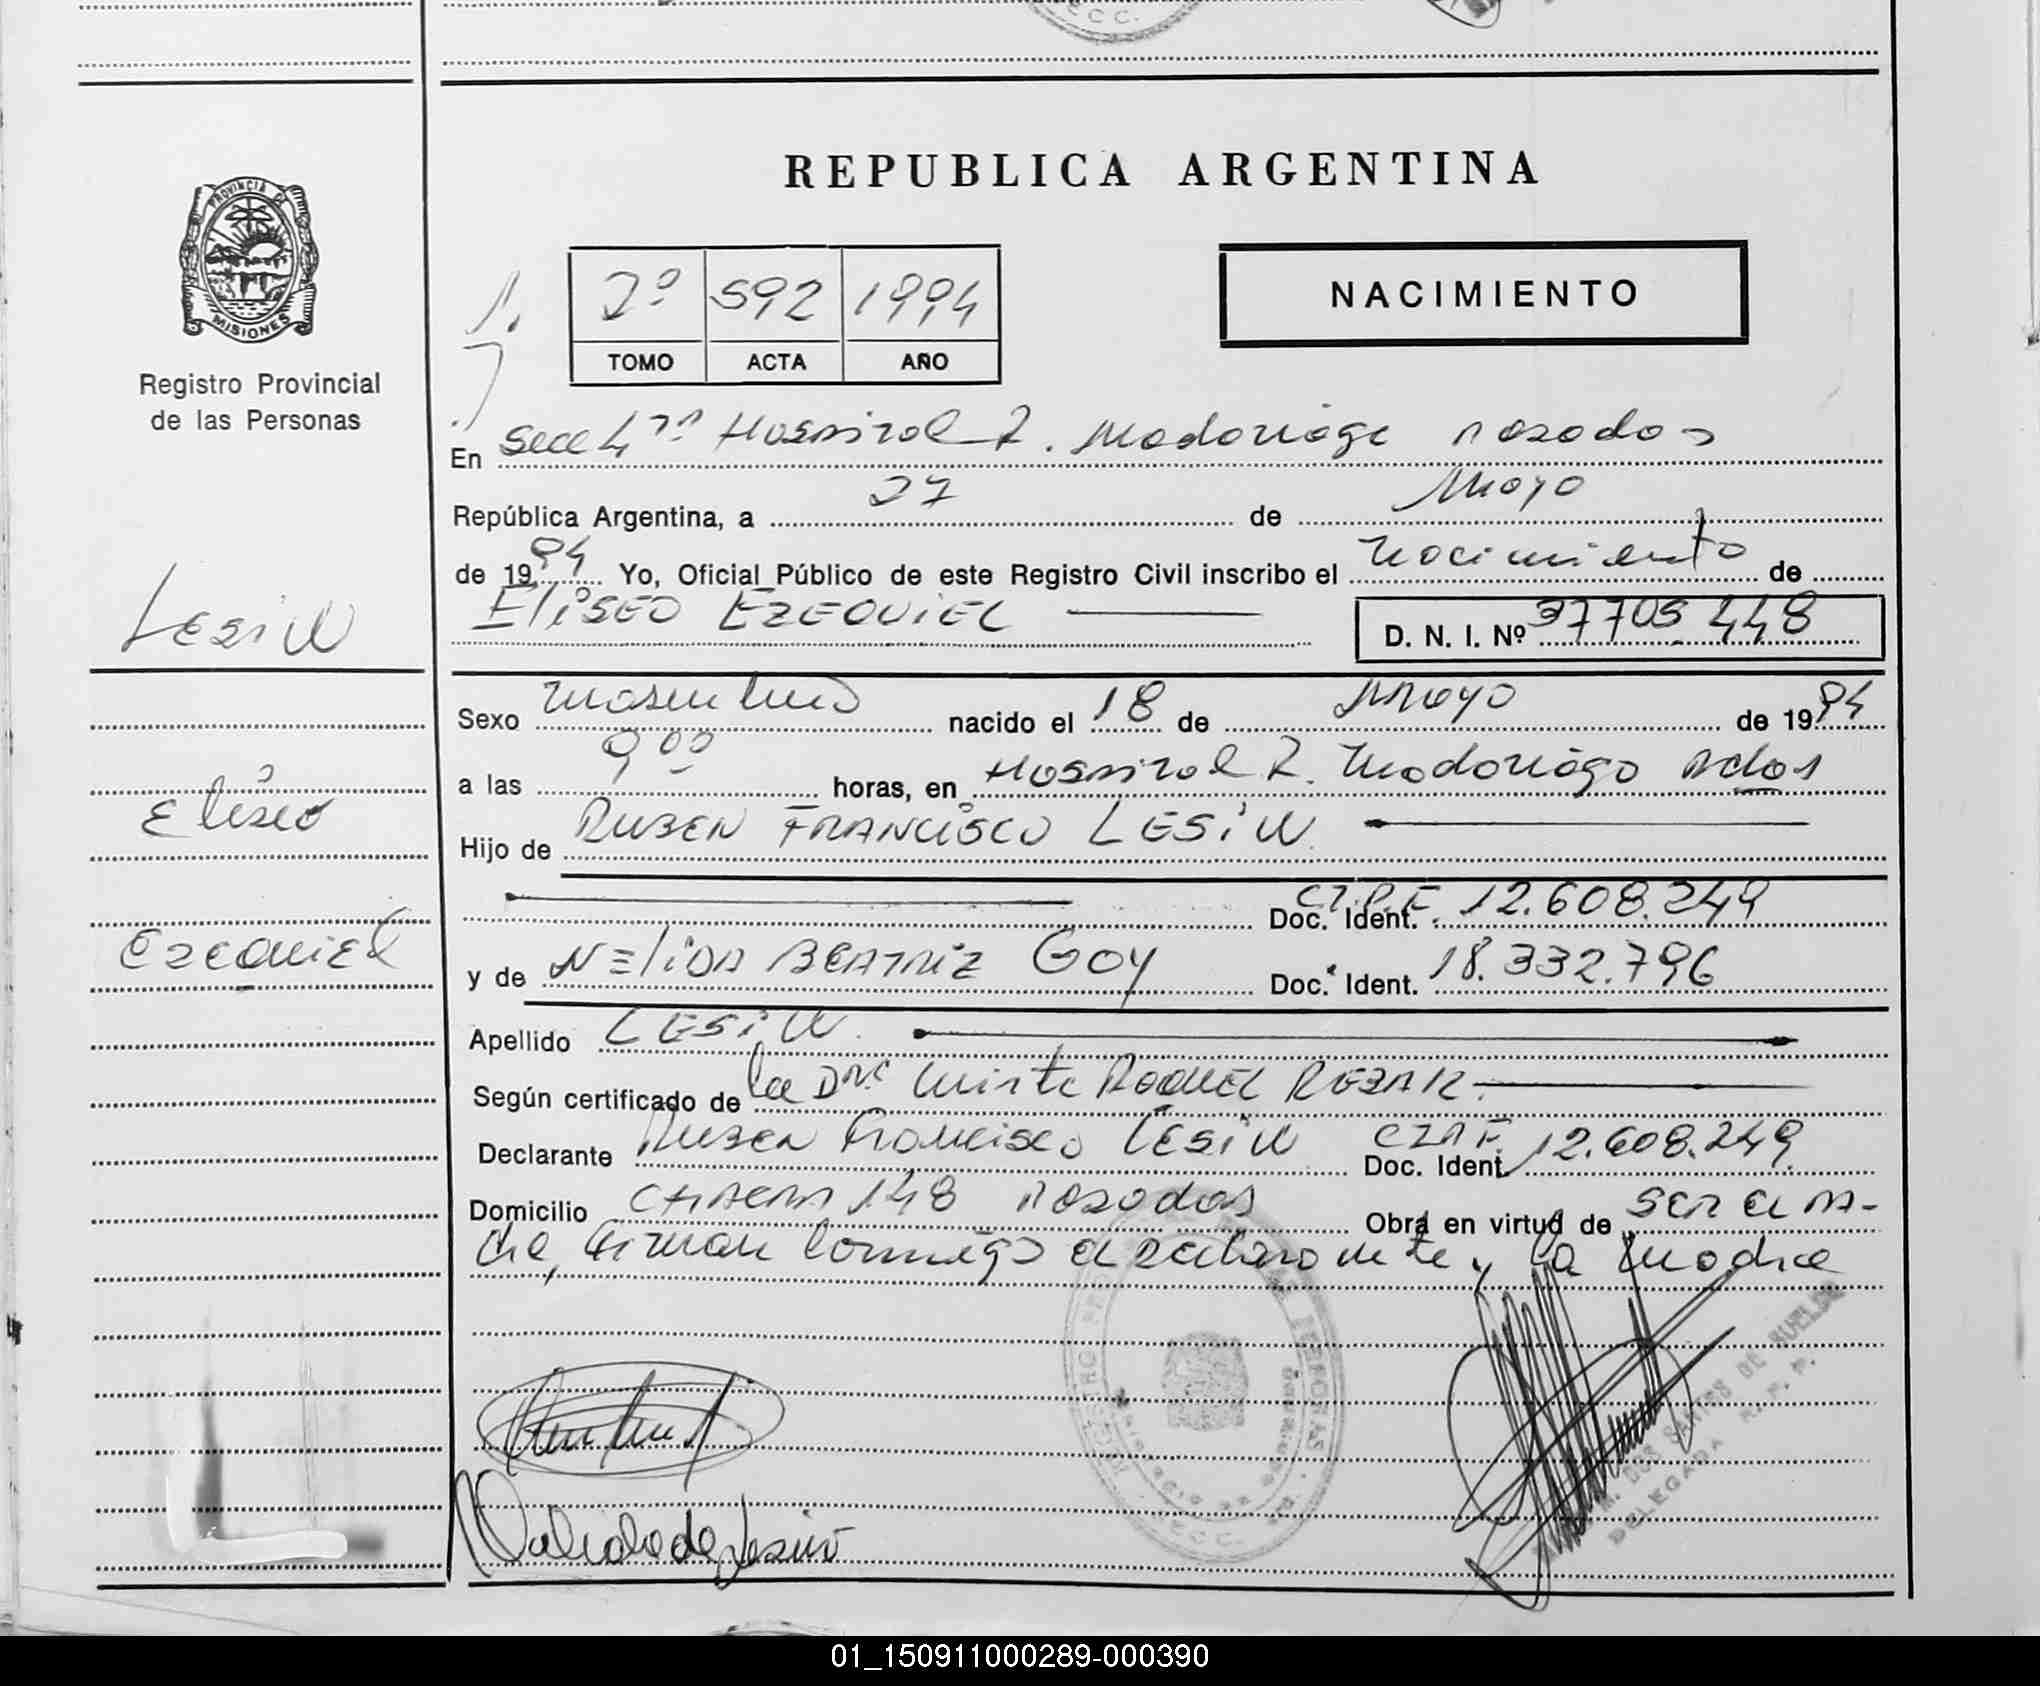 E C C.
PROVINCIA DE
MISIONES
Registro Provincial
de las Personas
REPUBLICA ARGENTINA
2º 592 1994
TOMO ACTA AÑO
NACIMIENTO
En Secc 4ta Hospital R. Madariaga Posadas
República Argentina, a 27 de Mayo
de 1994 Yo, Oficial Público de este Registro Civil inscribo el nacimiento de
ELISEO EZEQUIEL
D. N. I. Nº 37705.448
Lesiw
Eliseo
Ezequiel
Sexo masculino nacido el 18 de Mayo de 1994
a las 9 00 horas, en Hospital R. Madariaga Pdas
Hijo de RUBEN FRANCISCO LESIW.
Doc. Ident. C.I.P.F. 12.608.249
y de NELIDA BEATRIZ GOY Doc. Ident. 18.332.796
Apellido LESIW.
Según certificado de la Dra. Mirta RAQUEL
Declarante Ruben Francisco LESIW Doc. Ident. 12.608.249
Domicilio CHACRA 148 Posadas Obra en virtud de SER EL PA-
dre, firman conmigo el declarante y la madre
DOS SANTOS DE
DELEGADA
01_150911000289-000390